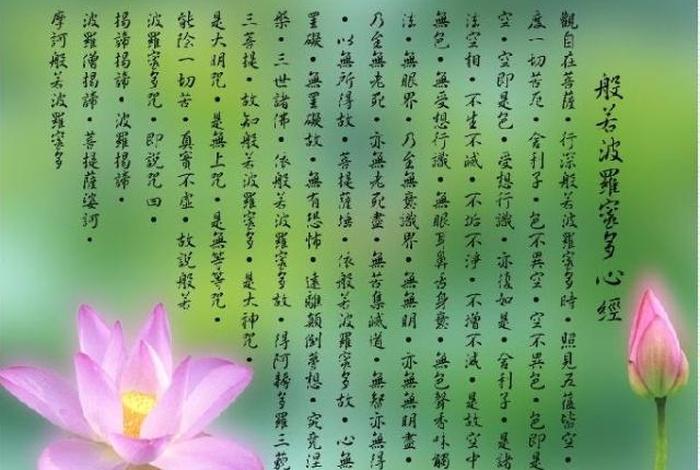 般若波羅蜜多心經
觀自在菩薩•行深般若波羅蜜多時•照見五蘊皆空•
度一切苦厄•舍利子•色不異空•空不異色•色即是
空•空即是色•受想行識•亦復如是•舍利子•是諸
法空相•不生不滅•不垢不淨•不增不減•是故空中
無色•無受想行識•無眼耳鼻舌身意•無色聲香味觸
法•無眼界•乃至無意識界•無無明•亦無無明盡•
乃至無老死•亦無老死盡•無苦集滅道•無智亦無得
•以無所得故•菩提薩埵•依般若波羅蜜多故•心無
罣礙•無罣礙故•無有恐怖•遠離顛倒夢想•究竟涅
槃•三世諸佛•依般若波羅蜜多故•得阿耨多羅三藐
三菩提•故知般若波羅蜜多•是大神咒•
是大明咒•是無上咒•是無等等咒•
能除一切苦•真實不虛•故說般若
波羅蜜多咒•即說咒曰•
揭諦揭諦•波羅揭諦•
波羅僧揭諦•菩提薩婆訶•
摩訶般若波羅蜜多